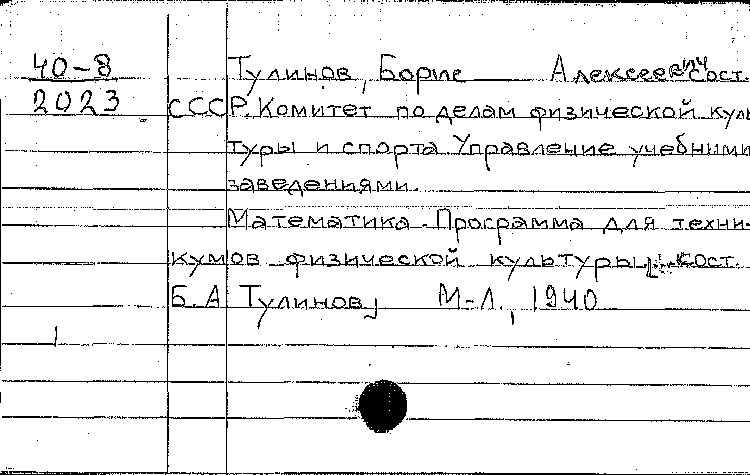 40-8
2023
Тулинов, Борис Алексеевич сост.
СССР. Комитет по делам физической куль
туры и спорта Управление учебными
заведениями.
Математика. Программа для техни-
кумов физической культуры [сост.
Б. А Тулинов]  М-Л., 1940